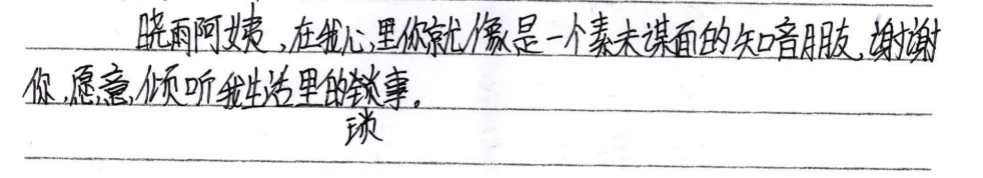 晓雨阿姨，在我心里你就像是一个素未谋面的知音朋友，谢谢
你，愿意，倾听我生活里的锁事。
琐